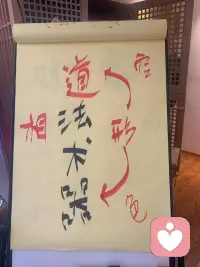 道法术器
空
形
色